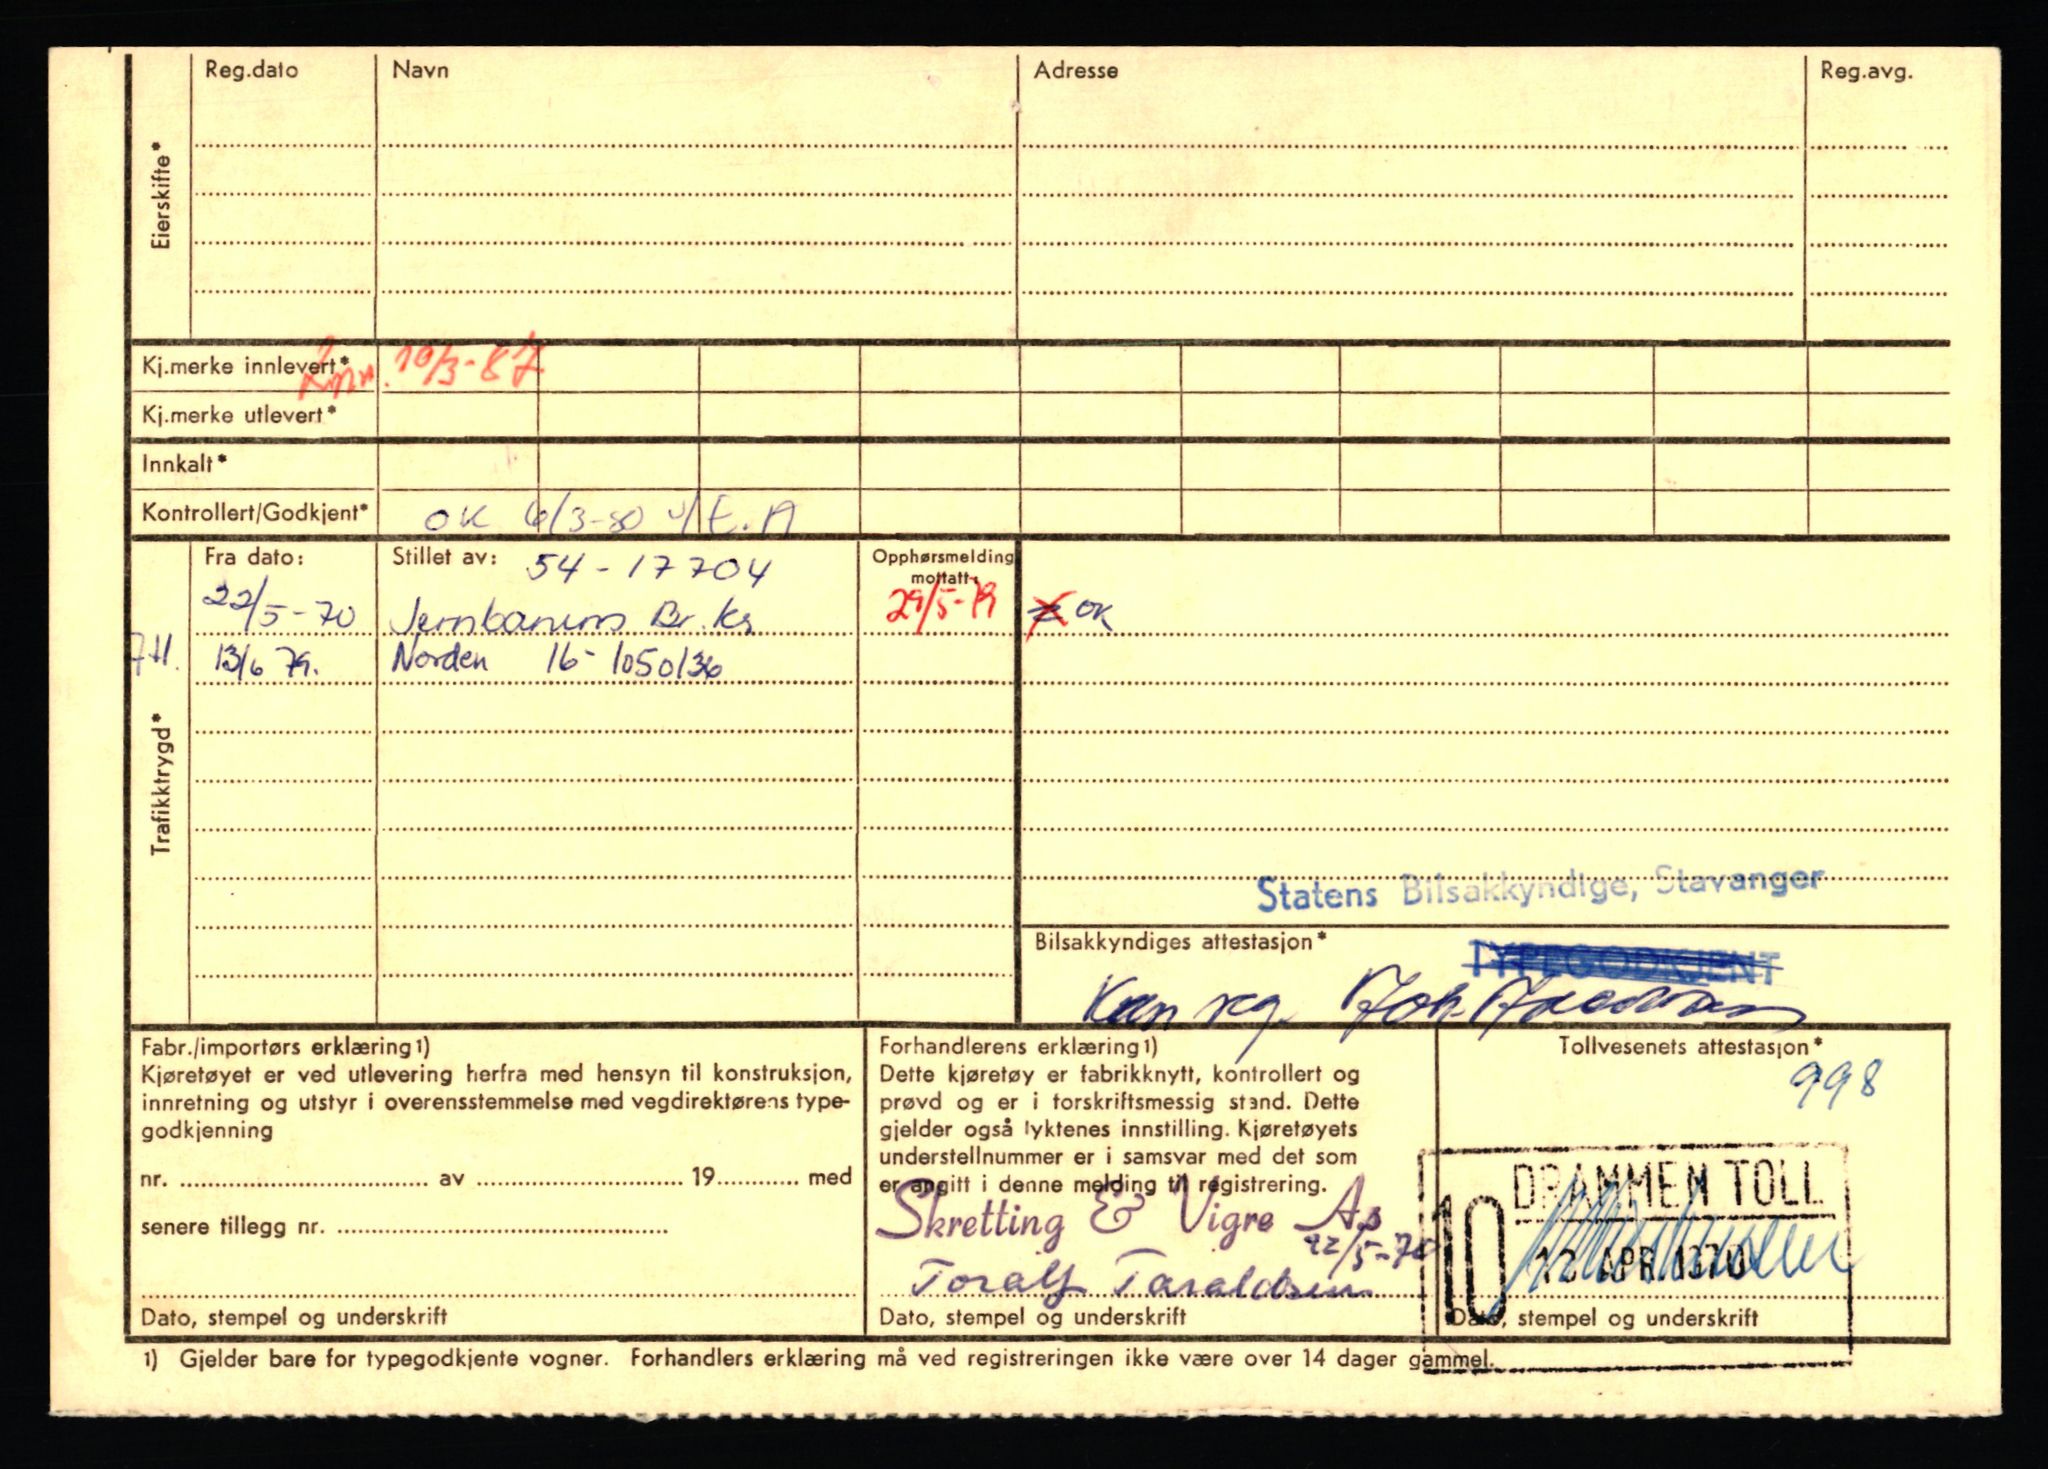 Eierskifte*
Reg.dato Navn Adresse Reg.avg.
Kj.merke innlevert* 19/3-87
Kj.merke utlevert*
Innkalt*
Kontrollert/Godkjent* OK 6/3-80 E.A
Trafikktrygd*
Fra dato: Stillet av: 54-17704 Opphørsmelding mottatt:
22/5-70 Jernbanens Br.ks 29/5-79 OK
13/6 79. Norden 16-1050136
Statens Bilsakkyndige, Stavanger
Bilsakkyndiges attestasjon*
TYPEGODKJENT
Kan reg.
Fabr./importørs erklæring1)
Kjøretøyet er ved utlevering herfra med hensyn til konstruksjon,
innretning og utstyr i overensstemmelse med vegdirektørens type-
godkjenning
nr. av 19 med
senere tillegg nr.
Dato, stempel og underskrift
Forhandlerens erklæring1)
Dette kjøretøy er fabrikknytt, kontrollert og
prøvd og er i forskriftsmessig stand. Dette
gjelder også lyktenes innstilling. Kjøretøyets
understellnummer er i samsvar med det som
er angitt i denne melding til registrering.
Skretting & Vigre As
22/5-70
Toralf Taraldsen
Dato, stempel og underskrift
Tollvesenets attestasjon*
998
DRAMMEN TOLL
10
12 APR. 1970
Dato, stempel og underskrift
1) Gjelder bare for typegodkjente vogner. Forhandlers erklæring må ved registreringen ikke være over 14 dager gammel.